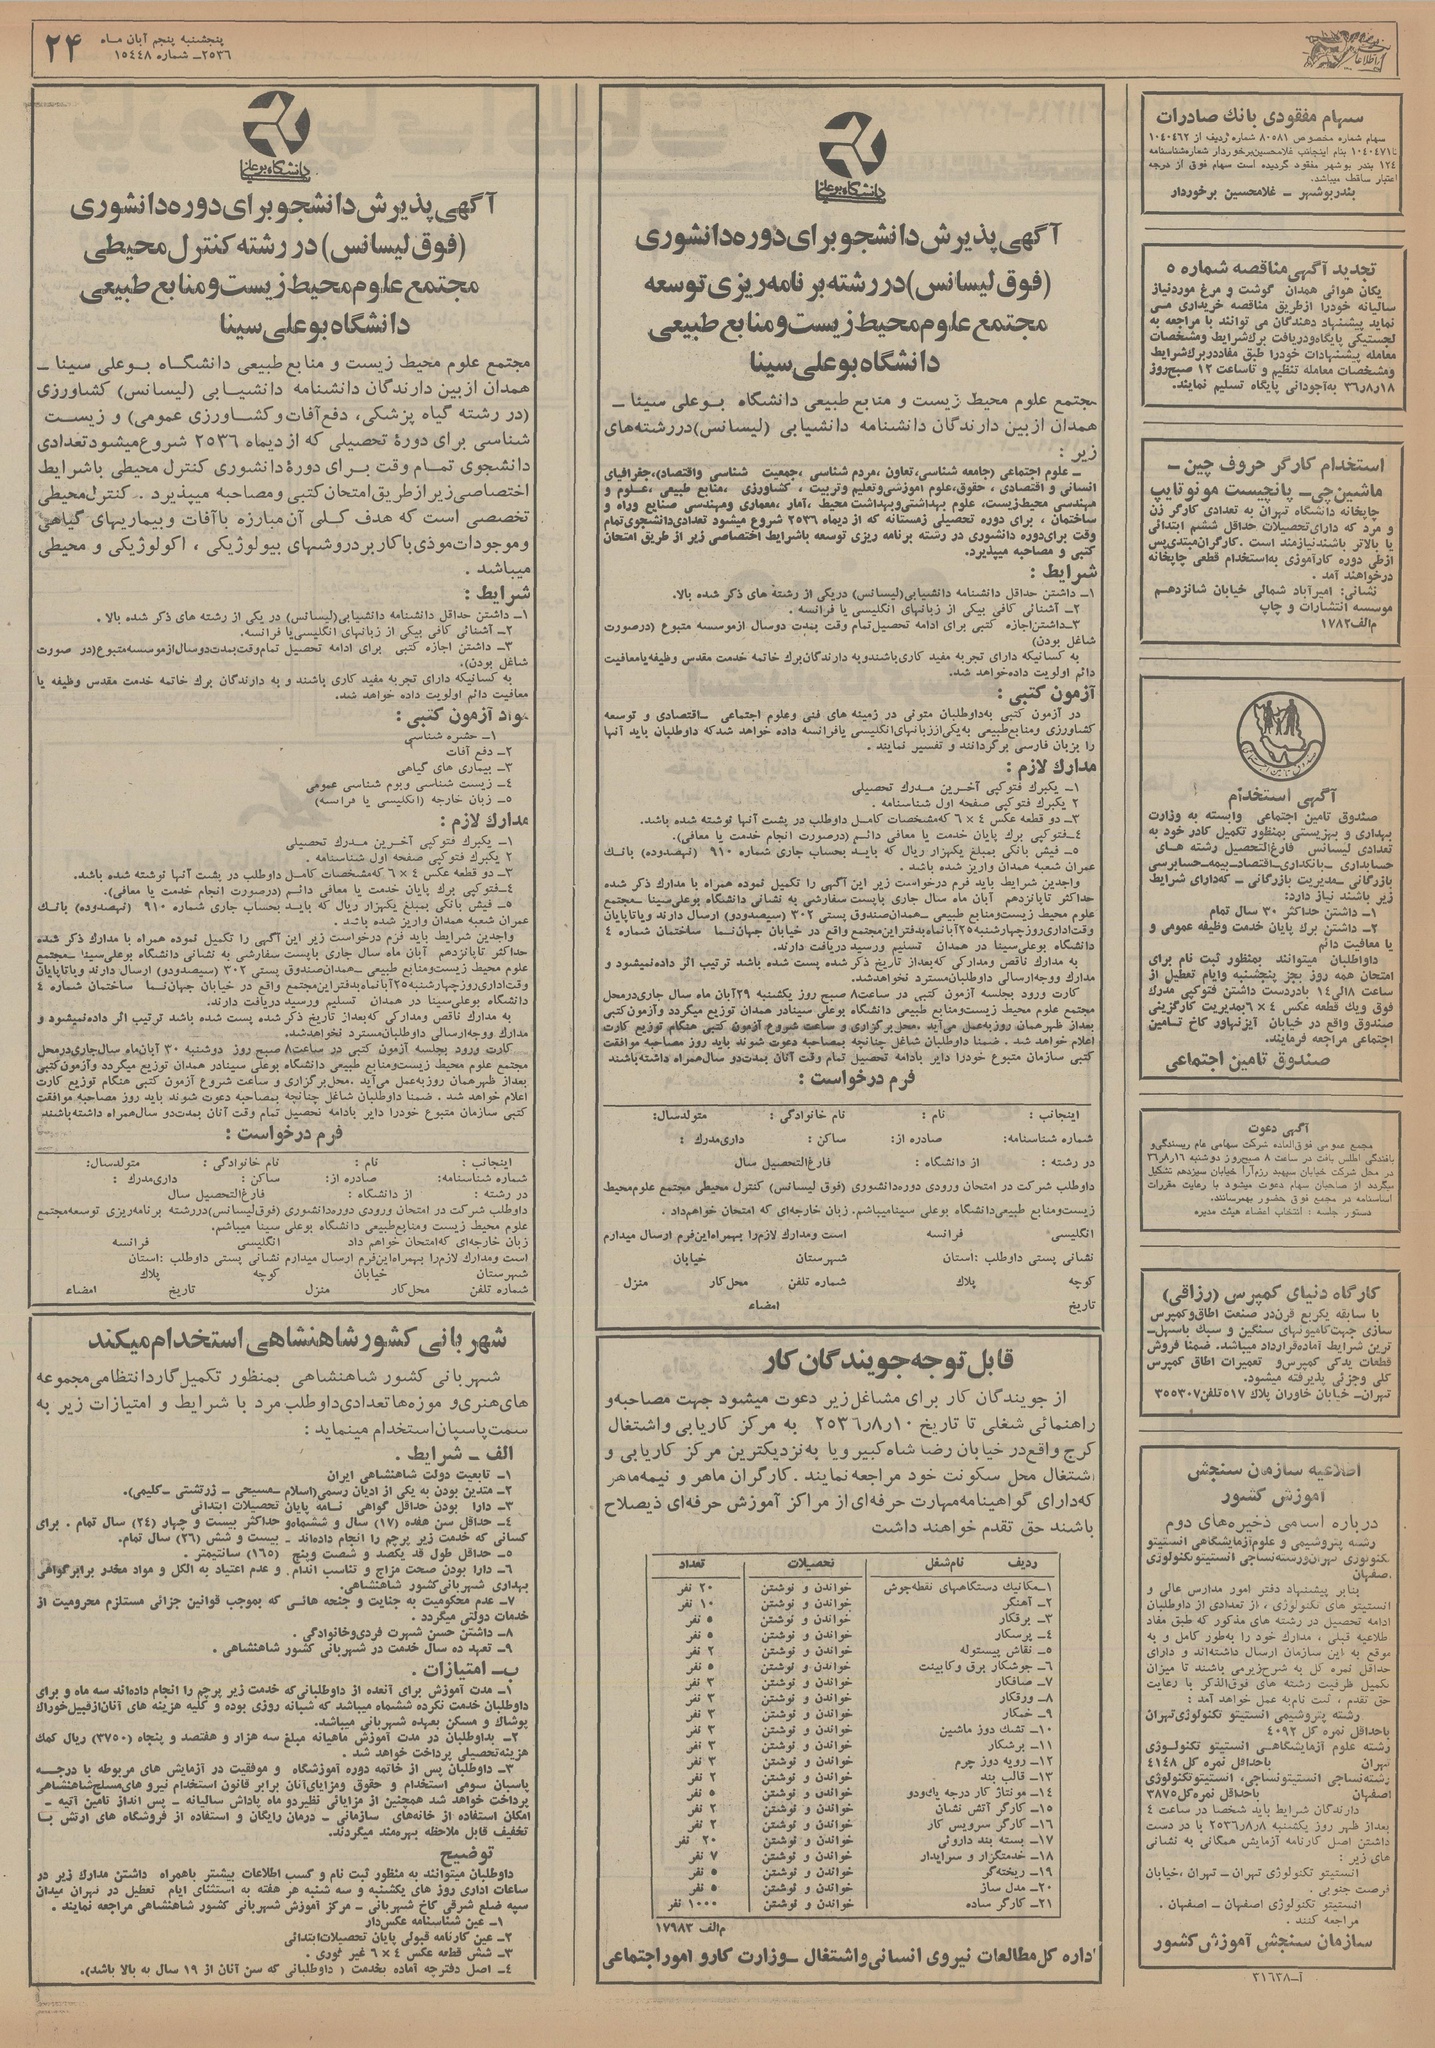 ۲۴
پنجشنبه پنجم آبان ماه
۲۵۳۶ـ شماره ۱۵۴۴۸
اطلاعات
سهام مفقودی بانك صادرات
سهام شماره مخصوص ۸۰۵۸۱ شماره ردیف از ۱۰۴۰۴۶۲
تا۱۰۴۰۴۷۱ بنام اینجانب غلامحسین‌برخوردار شماره‌شناسنامه
۱۲۴ بندر بوشهر مفقود گردیده است سهام فوق از درجه
اعتبار ساقط میباشد.
بندربوشهر ـ غلامحسین برخوردار
تجدید آگهی مناقصه شماره ۵
یکان هوائی همدان گوشت و مرغ موردنیاز
سالیانه خودرا ازطریق مناقصه خریداری می
نماید پیشنهاد دهندگان می توانند با مراجعه به
لجستیکی پایگاه‌ودریافت برك‌شرایط ومشخصات
معامله پیشنهادات خودرا طبق مفاددربرك‌شرایط
ومشخصات معامله تنظیم و تاساعت ۱۲ صبح‌روز
۳۶ر۸ر۱۸ به‌آجودانی پایگاه تسلیم نمایند.
استخدام کارگر حروف چین ـ
ماشین‌چی ـ پانچیست مونوتایپ
چاپخانه دانشگاه تهران به تعدادی کارگر زن
و مرد که دارای‌تحصیلات حداقل ششم ابتدائی
یا بالاتر باشندنیازمند است . کارگران‌مبتدی‌پس
ازطی دوره کارآموزی به‌استخدام قطعی چاپخانه
درخواهند آمد .
نشانی: امیرآباد شمالی خیابان شانزدهم
موسسه انتشارات و چاپ
م‌الف۱۷۸۲
آگهی استخدام
صندوق تامین اجتماعی وابسته به وزارت
بهداری و بهزیستی بمنظور تکمیل کادر خود به
تعدادی لیسانس فارغ‌التحصیل رشته های
حسابداری ـ بانکداری ـ اقتصاد ـ بیمه ـ حسابرسی
بازرگانی ـ مدیریت بازرگانی ـ که‌دارای شرایط
زیر باشند نیاز دارد:
۱ـ داشتن حداکثر ۳۰ سال تمام
۲ـ داشتن برك پایان خدمت وظیفه عمومی و
یا معافیت دائم
داوطلبان میتوانند بمنظور ثبت نام برای
امتحان همه روز بجز پنجشنبه وایام تعطیل از
ساعت ۸الی۱۴ بادردست داشتن فتوکپی مدرك
فوق ویك قطعه عکس ۴ × ۶بمدیریت کارگزینی
صندوق واقع در خیابان آیزنهاور کاخ تامین
اجتماعی مراجعه فرمایند.
صندوق تامین اجتماعی
آگهی دعوت
مجمع عمومی فوق‌العاده شرکت سهامی عام ریسندگی‌و
بافندگی اطلس بافت در ساعت ۸ صبح‌روز دوشنبه ۳۶ر۸ر۱۶
در محل شرکت خیابان سپهبد رزم‌آرا خیابان سیزدهم تشکیل
میگردد از صاحبان سهام دعوت میشود با رعایت مقررات
اساسنامه در مجمع فوق حضور بهمرسانند.
دستور جلسه : انتخاب اعضاء هیئت مدیره
کارگاه دنیای کمپرس (رزاقی)
با سابقه یکربع قرن‌در صنعت اطاق‌وکمپرس
سازی جهت‌کامیونهای سنگین و سبك باسهل‌ـ
ترین شرایط آماده‌قرارداد میباشد. ضمنا فروش
قطعات یدکی کمپرس‌و تعمیرات اطاق کمپرس
کلی وجزئی پذیرفته میشود.
تهران ـ خیابان خاوران پلاك ۵۱۷ تلفن۳۵۵۳۰۷
اطلاعیه سازمان سنجش
آموزش کشور
درباره اسامی ذخیره‌های دوم
رشته پتروشیمی و علوم‌آزمایشگاهی انستیتو
تکنولوژی تهران‌ورشته‌نساجی انستیتوتکنولوژی
اصفهان
بنابر پیشنهاد دفتر امور مدارس عالی و
انستیتو های تکنولوژی ، از تعدادی از داوطلبان
ادامه تحصیل در رشته های مذکور که طبق مفاد
طلاعیه قبلی ، مدارك خود را به‌طور کامل و به
موقع به این سازمان ارسال داشته‌اند و دارای
حداقل نمره کل به شرح‌زیرمی باشند تا میزان
تکمیل ظرفیت رشته های فوق‌الذکر با رعایت
حق تقدم ، ثبت نام‌به عمل خواهد آمد :
رشته پتروشیمی انستیتو تکنولوژی‌تهران
باحداقل نمره کل ۴۰۹۲
رشته علوم آزمایشگاهی انستیتو تکنولوژی
تهران باحداقل نمره کل ۴۱۴۸
رشته‌نساجی انستیتونساجی، انستیتوتکنولوژی
اصفهان باحداقل نمره‌کل۳۸۷۵
دارندگان شرایط باید شخصا در ساعت ۴
بعداز ظهر روز یکشنبه ۲۵۳۶ر۸ر۸ با در دست
داشتن اصل کارنامه آزمایش همگانی به نشانی
های زیر :
انستیتو تکنولوژی تهران ـ تهران ،خیابان
فرصت جنوبی .
انستیتو تکنولوژی اصفهان ـ اصفهان .
مراجعه کنند .
سازمان سنجش آموزش کشور
آـ۲۱۶۲۸
دانشگاه بوعلی سینا
آگهی پذیرش دانشجو برای دوره دانشوری
(فوق لیسانس) در رشته برنامه ریزی توسعه
مجتمع علوم محیط زیست و منابع طبیعی
دانشگاه بوعلی سینا
مجتمع علوم محیط زیست و منابع طبیعی دانشگاه بوعلی سینا ـ
همدان از بین دارندگان دانشنامه دانشیابی (لیسانس) در رشته‌های
زیر :
ـ علوم اجتماعی (جامعه شناسی،تعاون ،مردم شناسی ،جمعیت شناسی واقتصاد)،جغرافیای
انسانی و اقتصادی ، حقوق،علوم آموزشی‌وتعلیم وتربیت ، کشاورزی ،منابع طبیعی ،علوم و
مهندسی محیط‌زیست، علوم بهداشتی‌وبهداشت محیط ،آمار ،معماری ومهندسی صنایع وراه و
ساختمان ، برای دوره تحصیلی زمستانه که از دیماه ۲۵۳۶ شروع میشود تعدادی‌دانشجوی‌تمام
وقت برای‌دوره دانشوری در رشته برنامه ریزی توسعه باشرایط اختصاصی زیر از طریق امتحان
کتبی و مصاحبه میپذیرد.
شرایط :
۱ـ داشتن حداقل دانشنامه دانشیابی(لیسانس) دریکی از رشته های ذکر شده بالا.
۲ـ آشنائی کافی بیکی از زبانهای انگلیسی یا فرانسه .
۳ـ داشتن‌اجازه کتبی برای ادامه تحصیل‌تمام وقت بمدت دوسال ازموسسه متبوع (درصورت
شاغل بودن)
به کسانیکه دارای تجربه مفید کاری باشندوبه دارندگان‌برك خاتمه خدمت مقدس وظیفه‌یامعافیت
دائم اولویت داده‌خواهد شد.
آزمون کتبی :
در آزمون کتبی به‌داوطلبان متونی در زمینه های فنی وعلوم اجتماعی ـ اقتصادی و توسعه
کشاورزی ومنابع‌طبیعی به‌یکی‌اززبانهای‌انگلیسی یافرانسه داده خواهد شدکه داوطلبان باید آنها
را بزبان فارسی برگردانند و تفسیر نمایند .
مدارك لازم :
۱ـ یکبرك فتوکپی آخرین مدرك تحصیلی
۲ یکبرك فتوکپی صفحه اول شناسنامه .
۳ـ دو قطعه عکس ۴ × ۶ که‌مشخصات کامل داوطلب در پشت آنها نوشته شده باشد.
۴ـ فتوکپی برك پایان خدمت یا معافی دائم (درصورت انجام خدمت یا معافی).
۵ـ فیش بانکی بمبلغ یکهزار ریال که باید بحساب جاری شماره ۹۱۰ (نهصدوده) بانك
عمران شعبه همدان واریز شده باشد .
واجدین شرایط باید فرم درخواست زیر این آگهی را تکمیل نموده همراه با مدارك ذکر شده
حداکثر تاپانزدهم آبان ماه سال جاری باپست سفارشی به نشانی دانشگاه بوعلی‌سینا ـ مجتمع
علوم محیط زیست‌ومنابع طبیعی ـ همدان‌صندوق پستی ۳۰۲ (سیصدودو) ارسال دارند ویاتاپایان
وقت‌اداری‌روزچهارشنبه ۲۵آبانماه‌بدفتراین‌مجتمع واقع در خیابان جهان‌نما ساختمان شماره ۴
دانشگاه بوعلی‌سینا در همدان تسلیم ورسید دریافت دارند.
به مدارك ناقص ومدارکی که‌بعداز تاریخ ذکر شده پست شده باشد ترتیب اثر داده‌نمیشود و
مدارك ووجه‌ارسالی داوطلبان‌مسترد نخواهدشد.
کارت ورود بجلسه آزمون کتبی در ساعت۸ صبح روز یکشنبه ۲۹آبان ماه سال جاری‌درمحل
مجتمع علوم محیط زیست‌ومنابع طبیعی دانشگاه بوعلی سینادر همدان توزیع میگردد وآزمون‌کتبی
بعداز ظهرهمان روزبه‌عمل می‌آید .محل‌برگزاری و ساعت شروع آزمون کتبی هنگام توزیع کارت
اعلام خواهد شد . ضمنا داوطلبان شاغل چنانچه بمصاحبه دعوت شوند باید روز مصاحبه موافقت
کتبی سازمان متبوع خودرا دایر بادامه تحصیل تمام وقت آنان بمدت‌دو سال‌همراه داشته‌باشند
فرم درخواست :
اینجانب : نام : نام خانوادگی : متولدسال:
شماره شناسنامه: صادره از: ساکن : داری‌مدرك :
در رشته : از دانشگاه : فارغ‌التحصیل سال
داوطلب شرکت در امتحان ورودی دوره‌دانشوری (فوق لیسانس) کنترل محیطی مجتمع علوم‌محیط
زیست‌ومنابع طبیعی‌دانشگاه بوعلی سینامیباشم. زبان خارجه‌ای که امتحان خواهم‌داد .
انگلیسی فرانسه است ومدارك لازم‌را بهمراه‌این‌فرم ارسال میدارم
نشانی پستی داوطلب :استان شهرستان خیابان
کوچه پلاك شماره تلفن محل‌کار منزل
تاریخ امضاء
قابل توجه جویندگان کار
از جویندگان کار برای مشاغل زیر دعوت میشود جهت مصاحبه‌و
راهنمائی شغلی تا تاریخ ۲۵۳۶ر۸ر۱۰ به مرکز کاریابی واشتغال
کرج واقع‌در خیابان رضا شاه کبیر ویا به‌نزدیکترین مرکز کاریابی و
اشتغال محل سکونت خود مراجعه نمایند . کارگران ماهر و نیمه‌ماهر
که‌دارای گواهینامه‌مهارت حرفه‌ای از مراکز آموزش حرفه‌ای ذیصلاح
باشند حق تقدم خواهند داشت
ردیف نام‌شغل تحصیلات تعداد
۱ـ مکانیك دستگاههای نقطه‌جوش خواندن و نوشتن ۲۰ نفر
۲ـ آهنگر خواندن و نوشتن ۱۰ نفر
۳ـ برقکار خواندن و نوشتن ۵ نفر
۴ـ پرسکار خواندن و نوشتن ۵ نفر
۵ـ نقاش پیستوله خواندن و نوشتن ۲ نفر
۶ـ جوشکار برق وکابینت خواندن و نوشتن ۵ نفر
۷ـ صافکار خواندن و نوشتن ۳ نفر
۸ـ ورقکار خواندن و نوشتن ۳ نفر
۹ـ خمکار خواندن و نوشتن ۳ نفر
۱۰ـ تشك دوز ماشین خواندن و نوشتن ۳ نفر
۱۱ـ برشکار خواندن و نوشتن ۳ نفر
۱۲ـ رویه دوز چرم خواندن و نوشتن ۳ نفر
۱۳ـ قالب بند خواندن و نوشتن ۲ نفر
۱۴ـ مونتاژ کار درجه یك‌ودو خواندن و نوشتن ۵ نفر
۱۵ـ کارگر آتش نشان خواندن و نوشتن ۲ نفر
۱۶ـ کارگر سرویس کار خواندن و نوشتن ۲ نفر
۱۷ـ بسته بند داروئی خواندن و نوشتن ۲۰ نفر
۱۸ـ خدمتگزار و سرایدار خواندن و نوشتن ۷ نفر
۱۹ـ ریخته‌گر خواندن و نوشتن ۵ نفر
۲۰ـ مدل ساز خواندن و نوشتن ۵ نفر
۲۱ـ کارگر ساده خواندن و نوشتن ۱۰۰۰ نفر
م‌الف ۱۷۹۸۳
اداره کل مطالعات نیروی انسانی واشتغال ـ وزارت کارو امور اجتماعی
دانشگاه بوعلی سینا
آگهی پذیرش دانشجو برای دوره دانشوری
(فوق لیسانس) در رشته کنترل محیطی
مجتمع علوم محیط زیست و منابع طبیعی
دانشگاه بوعلی سینا
مجتمع علوم محیط زیست و منابع طبیعی دانشگاه بوعلی سینا ـ
همدان از بین دارندگان دانشنامه دانشیابی (لیسانس) کشاورزی
(در رشته گیاه پزشکی، دفع‌آفات وکشاورزی عمومی) و زیست
شناسی برای دورهٔ تحصیلی که از دیماه ۲۵۳۶ شروع‌میشود تعدادی
دانشجوی تمام وقت برای دورهٔ دانشوری کنترل محیطی باشرایط
اختصاصی زیر از طریق امتحان کتبی ومصاحبه میپذیرد . کنترل محیطی
تخصصی است که هدف کلی آن مبارزه باآفات وبیماریهای گیاهی
وموجودات موذی باکاربرد روشهای بیولوژیکی ، اکولوژیکی و محیطی
میباشد .
شرایط :
۱ـ داشتن حداقل دانشنامه دانشیابی(لیسانس) در یکی از رشته های ذکر شده بالا .
۲ـ آشنائی کافی بیکی از زبانهای انگلیسی‌یا فرانسه.
۳ـ داشتن اجازه کتبی برای ادامه تحصیل تمام‌وقت‌بمدت‌دوسال‌ازموسسه متبوع(در صورت
شاغل بودن).
به کسانیکه دارای تجربه مفید کاری باشند و به دارندگان برك خاتمه خدمت مقدس وظیفه یا
معافیت دائم اولویت داده خواهد شد.
مواد آزمون کتبی :
۱ـ حشره شناسی
۲ـ دفع آفات
۳ـ بیماری های گیاهی
۴ـ زیست شناسی وبوم شناسی عمومی
۵ـ زبان خارجه (انگلیسی یا فرانسه)
مدارك لازم :
۱ـ یکبرك فتوکپی آخرین مدرك تحصیلی
۲ یکبرك فتوکپی صفحه اول شناسنامه .
۳ـ دو قطعه عکس ۴ × ۶ که‌مشخصات کامل داوطلب در پشت آنها نوشته شده باشد.
۴ـ فتوکپی برك پایان خدمت یا معافی دائم (درصورت انجام خدمت یا معافی).
۵ـ فیش بانکی بمبلغ یکهزار ریال که باید بحساب جاری شماره ۹۱۰ (نهصدوده) بانك
عمران شعبه همدان واریز شده باشد .
واجدین شرایط باید فرم درخواست زیر این آگهی را تکمیل نموده همراه با مدارك ذکر شده
حداکثر تاپانزدهم آبان ماه سال جاری باپست سفارشی به نشانی دانشگاه بوعلی‌سینا ـ مجتمع
علوم محیط زیست‌ومنابع طبیعی ـ همدان‌صندوق پستی ۳۰۲ (سیصدودو) ارسال دارند ویاتاپایان
وقت‌اداری‌روزچهارشنبه ۲۵آبانماه‌بدفتراین‌مجتمع واقع در خیابان جهان‌نما ساختمان شماره ۴
دانشگاه بوعلی‌سینا در همدان تسلیم ورسید دریافت دارند.
به مدارك ناقص ومدارکی که‌بعداز تاریخ ذکر شده پست شده باشد ترتیب اثر داده‌نمیشود و
مدارك ووجه‌ارسالی داوطلبان‌مسترد نخواهدشد.
کارت ورود بجلسه آزمون کتبی در ساعت۸ صبح روز دوشنبه ۳۰ آبان‌ماه سال‌جاری‌درمحل
مجتمع علوم محیط زیست‌ومنابع طبیعی دانشگاه بوعلی سینادر همدان توزیع میگردد وآزمون‌کتبی
بعداز ظهرهمان روزبه‌عمل می‌آید .محل‌برگزاری و ساعت شروع آزمون کتبی هنگام توزیع کارت
اعلام خواهد شد . ضمنا داوطلبان شاغل چنانچه بمصاحبه دعوت شوند باید روز مصاحبه موافقت
کتبی سازمان متبوع خودرا دایر بادامه تحصیل تمام وقت آنان بمدت‌دو سال‌همراه داشته‌باشند
فرم درخواست :
اینجانب : نام : نام خانوادگی : متولدسال:
شماره شناسنامه: صادره از: ساکن : داری‌مدرك :
در رشته : از دانشگاه : فارغ‌التحصیل سال
داوطلب شرکت در امتحان ورودی دوره‌دانشوری (فوق‌لیسانس)دررشته برنامه‌ریزی توسعه‌مجتمع
علوم محیط زیست‌ومنابع طبیعی‌دانشگاه بوعلی سینا میباشم.
زبان خارجه‌ای که‌امتحان خواهم داد انگلیسی فرانسه
است ومدارك لازم‌را بهمراه‌این‌فرم ارسال میدارم نشانی پستی داوطلب :استان
شهرستان خیابان کوچه پلاك
شماره تلفن محل‌کار منزل تاریخ امضاء
شهربانی کشور شاهنشاهی استخدام میکند
شهربانی کشور شاهنشاهی بمنظور تکمیل گارد انتظامی مجموعه
های‌هنری و موزه‌ها تعدادی داوطلب مرد با شرایط و امتیازات زیر به
سمت پاسبان استخدام مینماید :
الف ـ شرایط .
۱ـ تابعیت دولت شاهنشاهی ایران
۲ـ متدین بودن به یکی از ادیان رسمی(اسلام ـ مسیحی ـ زرتشتی ـ کلیمی).
۳ـ دارا بودن حداقل گواهی نامه پایان تحصیلات ابتدائی
۴ـ حداقل سن هفده (۱۷) سال و ششماه‌و حداکثر بیست و چهار (۲۴) سال تمام . برای
کسانی که خدمت زیر پرچم را انجام داده‌اند ـ بیست و شش (۲۶) سال تمام.
۵ـ حداقل طول قد یکصد و شصت وپنج (۱۶۵) سانتیمتر .
۶ـ دارا بودن صحت مزاج و تناسب اندام . و عدم اعتیاد به الکل و مواد مخدر برابرگواهی
بهداری شهربانی‌کشور شاهنشاهی.
۷ـ عدم محکومیت به جنایت و جنحه هائی که بموجب قوانین جزائی مستلزم محرومیت از
خدمات دولتی میگردد .
۸ـ داشتن حسن شهرت فردی‌وخانوادگی .
۹ـ تعهد ده سال خدمت در شهربانی کشور شاهنشاهی .
ب ـ امتیازات .
۱ـ مدت آموزش برای آنعده از داوطلبانی‌که خدمت زیر پرچم را انجام داده‌اند سه ماه و برای
داوطلبان خدمت نکرده ششماه میباشد که شبانه روزی بوده و کلیه هزینه های آنان‌ازقبیل‌خوراك
پوشاك و مسکن بعهده شهربانی میباشد.
۲ـ بداوطلبان در مدت آموزش ماهیانه مبلغ سه هزار و هفتصد و پنجاه (۳۷۵۰) ریال کمك
هزینه‌تحصیلی پرداخت خواهد شد .
۳ـ داوطلبان پس از خاتمه دوره آموزشگاه و موفقیت در آزمایش های مربوطه با درجه
پاسبان سومی استخدام و حقوق ومزایای‌آنان برابر قانون استخدام نیرو های‌مسلح‌شاهنشاهی
پرداخت خواهد شد همچنین از مزایائی نظیردو ماه پاداش سالیانه ـ پس انداز تامین آتیه ـ
امکان استفاده از خانه‌های سازمانی ـ درمان رایگان و استفاده از فروشگاه های ارتش با
تخفیف قابل ملاحظه بهره‌مند میگردند.
توضیح
داوطلبان میتوانند به منظور ثبت نام و کسب اطلاعات بیشتر باهمراه داشتن مدارك زیر در
ساعات اداری روز های یکشنبه و سه شنبه هر هفته به استثنای ایام تعطیل در تهران میدان
سپه ضلع شرقی کاخ شهربانی ـ مرکز آموزش شهربانی کشور شاهنشاهی مراجعه نمایند .
۱ـ عین شناسنامه عکس‌دار
۲ـ عین کارنامه قبولی پایان تحصیلات‌ابتدائی
۳ـ شش قطعه عکس ۴ × ۶ غیر فوری .
۴ـ اصل دفترچه آماده بخدمت ( داوطلبانی که سن آنان از ۱۹ سال به بالا باشد).